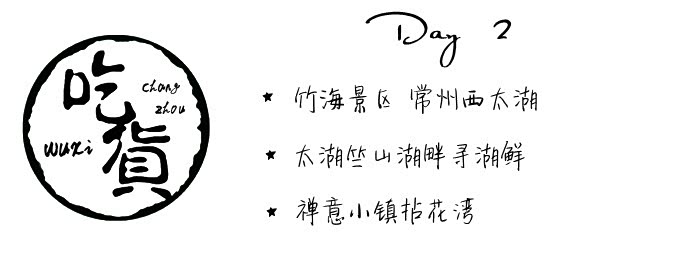 吃貨
chang
zhou
wuxi
Day 2
竹海景区 常州西太湖
太湖竺山湖畔寻湖鲜
禅意小镇拈花湾